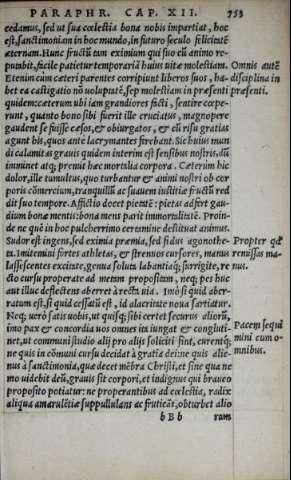 PARAPHR. CAP. XII. 753
cedamus, sed ut sua cœlestia bona nobis impartiat, hoc
est, sanctimoniam in hoc mundo, in futuro seculo felicitatē
æternam. Hunc fructũ tam eximium qui suo cũ animo re-
putabit, facile patietur temporariã huius uitæ molestiam. Omnis autē
Etenim cum cæteri parentes corripiunt liberos suos, ha- disciplina in
bet ea castigatio nõ uoluptatē, sep molestiam in præsenti præsenti.
quidem: cæterum ubi iam grandiores facti, sentire cœpe-
runt, quanto bono sibi fuerit ille cruciatus, magnopere
gaudent se fuisse cæsos, & obiurgatos, & cũ risu gratias
agunt his, quos ante lacrymantes ferebant. Sic huius mun
di calamitas grauis quidem interim est sensibus nostris, dũ
immineat atq; premit hæc mortalia corpora. Cæterum hic
dolor, ille tumultus, quo turbantur & animi nostri ob cor
poris cõmercium, tranquillũ ac suauem iustitiæ fructũ red
dit suo tempore. Afflictio docet pietatē: pietas adfert gau-
dium bona mentis: bona mens parit immortalitatē. Proin-
de ne quē in hoc pulcherrimo certamine destituat animus.
Sudor est ingens, sed eximia præmia, sed fidus agonothe- Propter qđ
ta. Imitemini fortes athletas, & strenuos cursores, manus remissas ma-
lassescentes excitate, genua soluta labantiaq; surrigite, re nus.
cto cursu properate ad metam propositam, neq; pes huc
aut illuc deflectens aberret à recta uia. Imò si quid aber-
ratum est, si quid cessatũ est, id alacritate noua sarciatur.
Neq; uerò satis uobis, ut quisq; sibi certet securus aliorũ,
imo pax & concordia uos omnes iungat & congluti- Pacem sequi
net, ut communi studio alij pro alijs soliciti sint, curentq; mini cum o-
ne quis in cõmuni cursu decidat à gratia dei: ne quis alie- mnibus.
nus à sanctimonia, quæ decet mẽbra Christi, et sine qua ne
mo uidebit deũ, grauis sit corpori, et indignus qui brauco
proposito potiatur: ne properantibus ad cœlestia, radix
aliqua amarulētiæ suppullulans ac fruticãs, obturbet alio
b B b ram